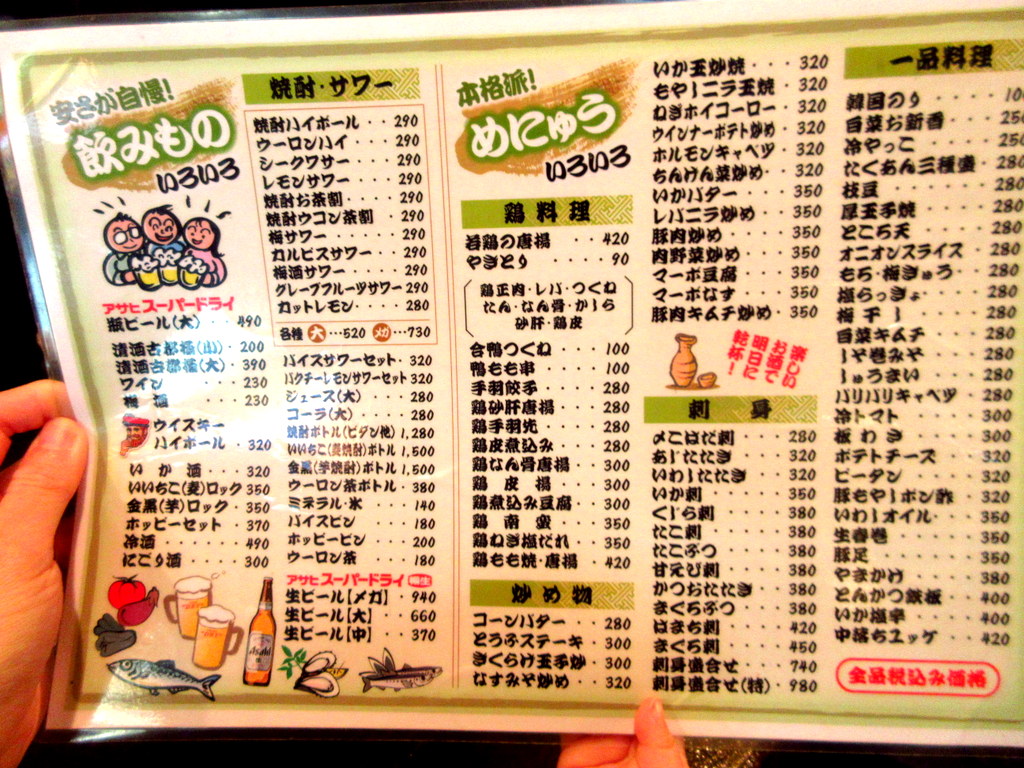 安さが自慢!
飲みもの
いろいろ
アサヒスーパードライ
瓶ビール(大)・・490
清酒古都福(小)・200
清酒古都福(大)・390
ワイン ・・・・230
梅酒 ・・・・230
ウイスキー
ハイボール・320
いか酒・・・320
いいちこ(麦)ロック 350
金黒(芋)ロック・350
ホッピーセット・・370
冷酒・・・・・・490
にごり酒・・・・300
焼酎・サワー
焼酎ハイボール・・290
ウーロンハイ・・・290
シークワサー・・・290
レモンサワー・・・290
焼酎お茶割・・・290
焼酎ウコン茶割・290
梅サワー・・・・290
カルピスサワー・・290
梅酒サワー・・・・290
グレープフルーツサワー 290
カットレモン・・・・280
各種 大・・・520 メガ・・・730
バイスサワーセット・320
パクチーレモンサワーセット 320
ジュース(大)・・・280
コーラ(大)・・・・280
焼酎ボトル(ビダン他) 1,280
いいちこ(麦焼酎)ボトル 1,500
金黒(芋焼酎)ボトル 1,500
ウーロン茶ボトル・380
ミネラル・氷・・・140
バイスビン・・・・180
ホッピービン・・・200
ウーロン茶・・・・180
アサヒスーパードライ
生ビール[メガ]・940
生ビール[大]・・660
生ビール[中]・・370
本格派!
めにゅう
いろいろ
鶏料理
若鶏の唐揚・・420
やきとり・・・・・90
鶏正肉・レバ・つくね
たん・なん骨・かしら
砂肝・鶏皮
合鴨つくね・・・100
鴨もも串・・・・100
手羽餃子・・・・280
鶏砂肝唐揚・・・280
鶏手羽先・・・・280
鶏皮煮込み・・・280
鶏なん骨唐揚・・300
鶏皮揚・・・・300
鶏煮込み豆腐・・300
鶏南蛮・・・・350
鶏ねぎ塩だれ・・350
鶏もも焼・唐揚・420
炒め物
コーンバター・・・280
とうふステーキ・・300
きくらげ玉子炒・300
なすみそ炒め・・320
いか玉炒焼・・・320
もやしニラ玉焼・320
ねぎホイコーロー・・320
ウインナーポテト炒め・320
ホルモンキャベツ・・320
ちんげん菜炒め・320
いかバター・・・350
レバニラ炒め・・350
豚肉炒め・・・・350
肉野菜炒め・・・350
マーボ豆腐・・・350
マーボなす・・・350
豚肉キムチ炒め・350
楽しい
お酒で
明日に
乾杯!
刺身
〆こはだ刺・・・280
あじたたき・・・320
いわしたたき・・320
いか刺・・・・・350
くじら刺・・・・380
たこ刺・・・・・380
たこぶつ・・・・380
甘えび刺・・・・380
かつおたたき・・380
まぐろぶつ・・・380
はまち刺・・・・420
まぐろ刺・・・・450
刺身盛合せ・・・740
刺身盛合せ(特)・980
一品料理
韓国のり・・・・
白菜お新香・・・
冷やっこ・・・・
たくあん三種盛・280
枝豆・・・・・・280
厚玉子焼・・・・280
ところ天・・・・280
オニオンスライス・・280
もろ・梅きゅう・・280
塩らっきょ・・・280
梅干し・・・・・280
白菜キムチ・・・280
しそ巻みそ・・・280
しゅうまい・・・280
パリパリキャベツ・・280
冷トマト・・・・300
板わさ・・・・・300
ポテトチーズ・・・320
ピータン・・・・320
豚もやしポン酢・320
いわしオイル・・・350
生春巻・・・・・350
豚足・・・・・・350
やまかけ・・・・380
とんかつ鉄板・・400
いか塩辛・・・・400
中落ちユッケ・・420
全品税込み価格
Asahi